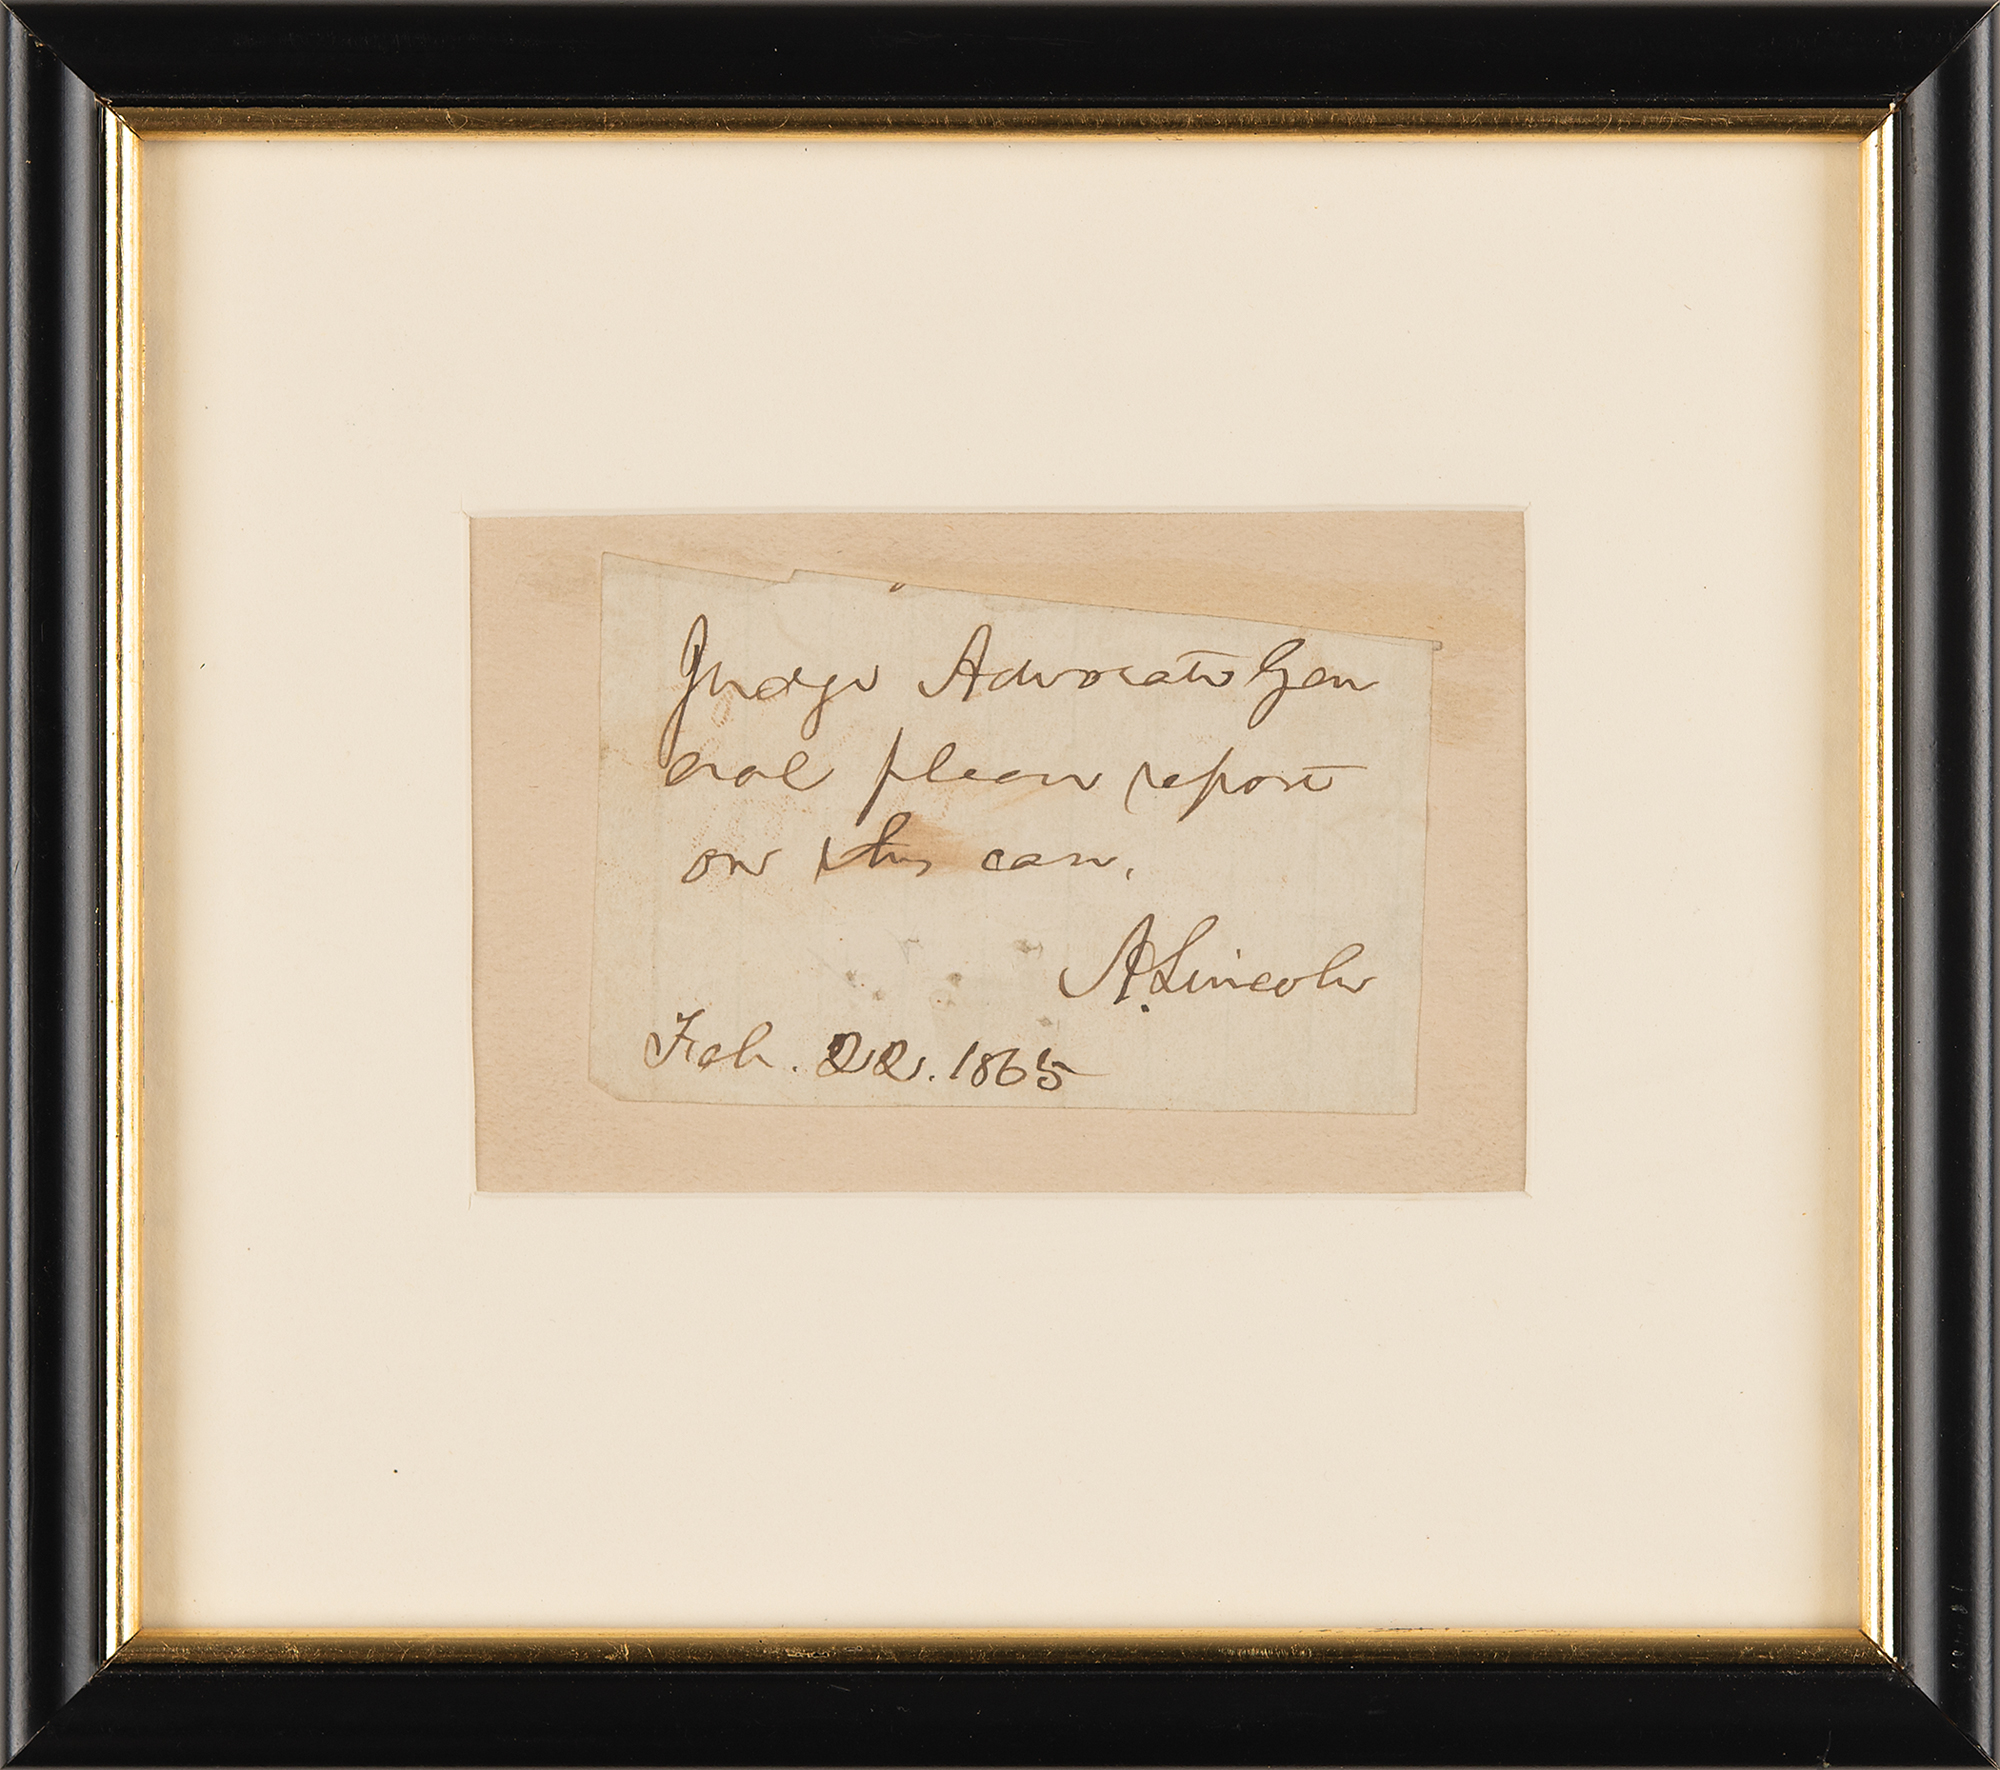 Judge Advocate Gen
eral please report
on this case.
A. Lincoln
Feb. 22. 1865